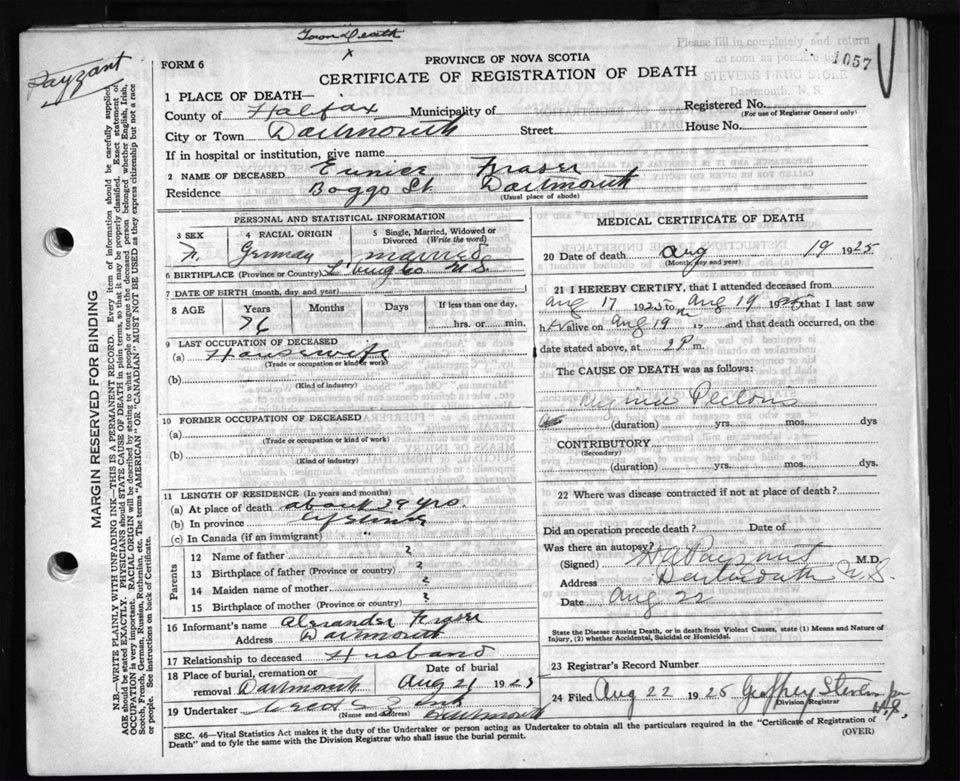 Town Death
x
Payzant
1057
FORM 6
PROVINCE OF NOVA SCOTIA
CERTIFICATE OF REGISTRATION OF DEATH
Please fill in completely and return
as soon as possible to
STEVENS DRUG STORE
Dartmouth, N. S.
1 PLACE OF DEATH—
County of Halifax Municipality of
Registered No.
(For use of Registrar General only)
City or Town Dartmouth Street House No.
If in hospital or institution, give name
2 NAME OF DECEASED Eunice Fraser
Residence Boggs St Dartmouth
(Usual place of abode)
PERSONAL AND STATISTICAL INFORMATION
3 SEX 4 RACIAL ORIGIN 5 Single, Married, Widowed or Divorced (Write the word)
F. Germay married
6 BIRTHPLACE (Province or Country) N.S.
7 DATE OF BIRTH (month, day and year)
8 AGE Years Months Days If less than one day,
76 hrs. or min.
9 LAST OCCUPATION OF DECEASED
(a) Housewife
(Trade or occupation or kind of work)
(b)
(Kind of industry)
10 FORMER OCCUPATION OF DECEASED
(a)
(Trade or occupation or kind of work)
(b)
(Kind of industry)
11 LENGTH OF RESIDENCE (In years and months)
(a) At place of death about 39 yrs.
(b) In province lifetime
(c) In Canada (if an immigrant) "
Parents
12 Name of father ?
13 Birthplace of father (Province or country) ?
14 Maiden name of mother ?
15 Birthplace of mother (Province or country) ?
16 Informant's name Alexander Fraser
Address Dartmouth
17 Relationship to deceased Husband
18 Place of burial, cremation or removal Dartmouth Date of burial Aug 21 1925
19 Undertaker Dartmouth
(Name and address)
MEDICAL CERTIFICATE OF DEATH
20 Date of death Aug 19 1925
(Month, day and year)
21 I HEREBY CERTIFY, that I attended deceased from
Aug 17 1925 to Aug 19 1925 that I last saw
h er alive on Aug 19 19 and that death occurred, on the
date stated above, at 2 P m.
The CAUSE OF DEATH was as follows:
Angina Pectoris
(duration) yrs. mos. dys
CONTRIBUTORY
(Secondary)
(duration) yrs. mos. dys.
22 Where was disease contracted if not at place of death?
Did an operation precede death? Date of
Was there an autopsy?
(Signed) H A Payzant M.D.
Address Dartmouth N.S.
Date Aug 22
State the Disease causing Death, or in death from Violent Causes, state (1) Means and Nature of Injury, (2) whether Accidental, Suicidal or Homicidal.
23 Registrar's Record Number
24 Filed Aug 22 1925 Geoffrey Stevens
Division Registrar
SEC. 46—Vital Statistics Act makes it the duty of the Undertaker or person acting as Undertaker to obtain all the particulars required in the "Certificate of Registration of
Death" and to fyle the same with the Division Registrar who shall issue the burial permit.
(OVER)
MARGIN RESERVED FOR BINDING
N.B.—WRITE PLAINLY WITH UNFADING INK—THIS IS A PERMANENT RECORD. Every item of information should be carefully supplied.
AGE should be stated EXACTLY. PHYSICIANS should STATE CAUSE OF DEATH in plain terms, so that it may be properly classified. Exact statement of
OCCUPATION is very important. RACIAL ORIGIN will be described by stating to what people or tongue the deceased person belonged whether English, Irish,
Scotch, French, German, Russian, Ruthenian, etc. The terms "AMERICAN" OR "CANADIAN" MUST NOT BE USED as they express citizenship but not a race
or people. See instructions on back of Certificate.